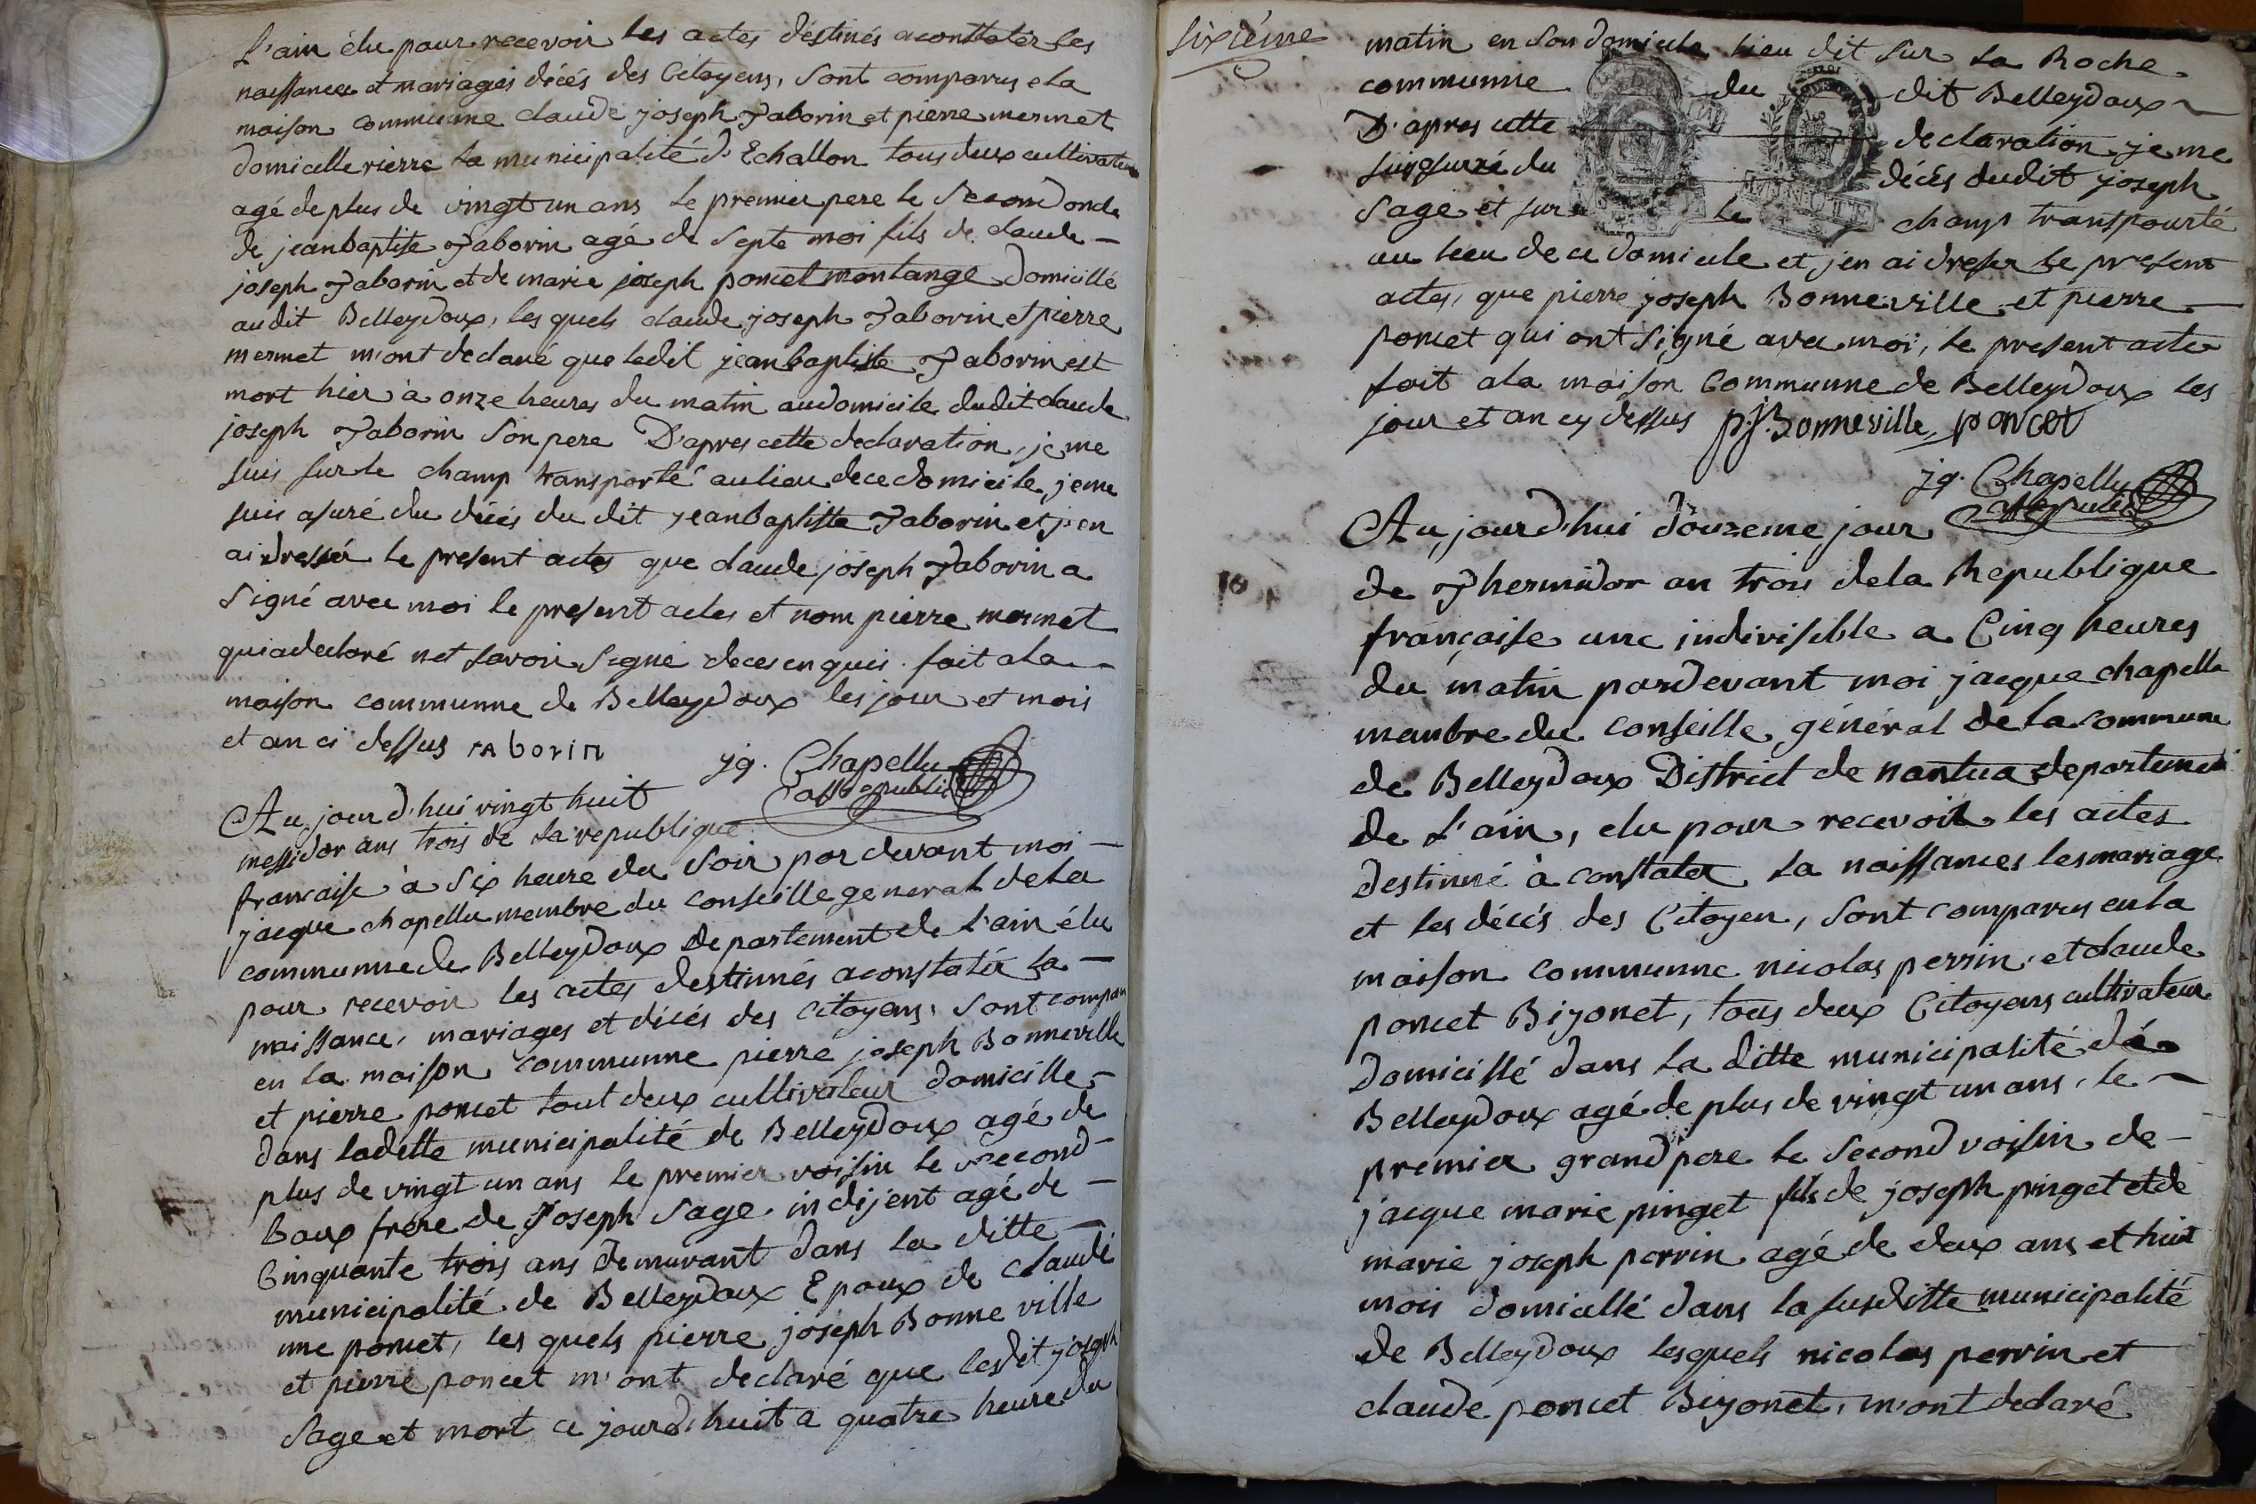 L'ain élu pour recevoir les actes déstinés aconstater les
naissances et mariages décés des Citoyens, Sont comparus ela
maison communne claude joseph Taborin et pierre mermet
domicelle rierre la municipalité d'Echallon tous deux cultivateur
agé de plus de vingt un ans le premier pere le Second oncle
de jean baptiste Taborin agé de Septe moi fils de claude
joseph Taborin et de marie joseph poncet montange domicillé
audit Belleydoux, les quels claude joseph Taborin et pierre
mermet m'ont declaré que ledit jean baptiste Taborin est
mort hier à onze heures du matin audomicile dudit claude
joseph Taborin Son pere D'apres cette declaration, je me
suis sur le champ transporté au lieu de ce domicile, je me
suis asuré du décés du dit jean baptiste Taborin et j'en
ai dressér le present actes que claude joseph Taborin a
Signé avec moi le present actes et nom pierre mermet
qui a declaré net savoir Signé de ces enquis. fait a la
maison communne de Belleydoux les jour et mois
et an ci dessus rAborin jq. Chapellu
offe public
Aujourd'hui vingt huit
messidor ans trois de la republique
francaise à Six heure du Soir par devant moi
jacque chapellu membre du conseille general de la
communne de Belleydoux departement de l'ain élu
pour recevoir les actes destinnés aconstatér la
naissance, mariages et décés des citoyens, Sont comparu
en la maison communne pierre joseph Bonneville
et pierre poncet tout deux cultivateur domicille
dans laditte municipalité de Belleydoux agé de
plus de vingt un ans le premier voisin le Second
Baux frere de Joseph Sage, indijent agé de
Cinquante trois ans demurant dans la ditte
municipalité de Belleydoux Epoux de claudi
nne poncet, les quels pierre joseph Bonne ville
et pierre poncet m'ont declaré que lesdit joseph
Sage et mort ce jourd'huit a quatre heure du
Sixiéme
matin en son domicile lieu dit sur la Roche
communne du dit Belleydoux
D'apres cette declaration je me
suis assuré du décés dudit joseph
Sage et sur le champ transpourté
MINUTE
au lieu de ce domicile et j'en ai dreser le present
actes, que pierre joseph Bonneville et pierre
poncet qui ont Signé avec moi, le present acte
fait a la maison Communne de Belleydoux les
jour et an cy dessus p.j. Bonneville poncet
jq. Chapellu
offe public
Aujourd'hui douzeme jour
de Thermidor an trois de la Republique
françaisse une indivisible a Cinq heures
du matin pardevant moi jacque chapellu
manbre du conseille général de la commune
de Belleydoux District de nantua departement
de L'ain, elu pour recevoir les actes
destinné à constater la naissances les mariage
et les décés des Citoyen, Sont comparus en la
maison communne nicolas perrin et claude
poncet Bijonet, tous deux Citoyens cultivateur
domicillé dans la ditte municipalité de
Belleydoux agé de plus de vingt un ans, le
premier grand pere le Second voisin de
jacque marie pinget fils de joseph pinget et de
marie joseph perrin agé de deux ans et huit
mois domicillé dans la susditte municipalité
de Belleydoux lesquels nicolas perrin et
claude poncet Bijonet, m'ont declaré